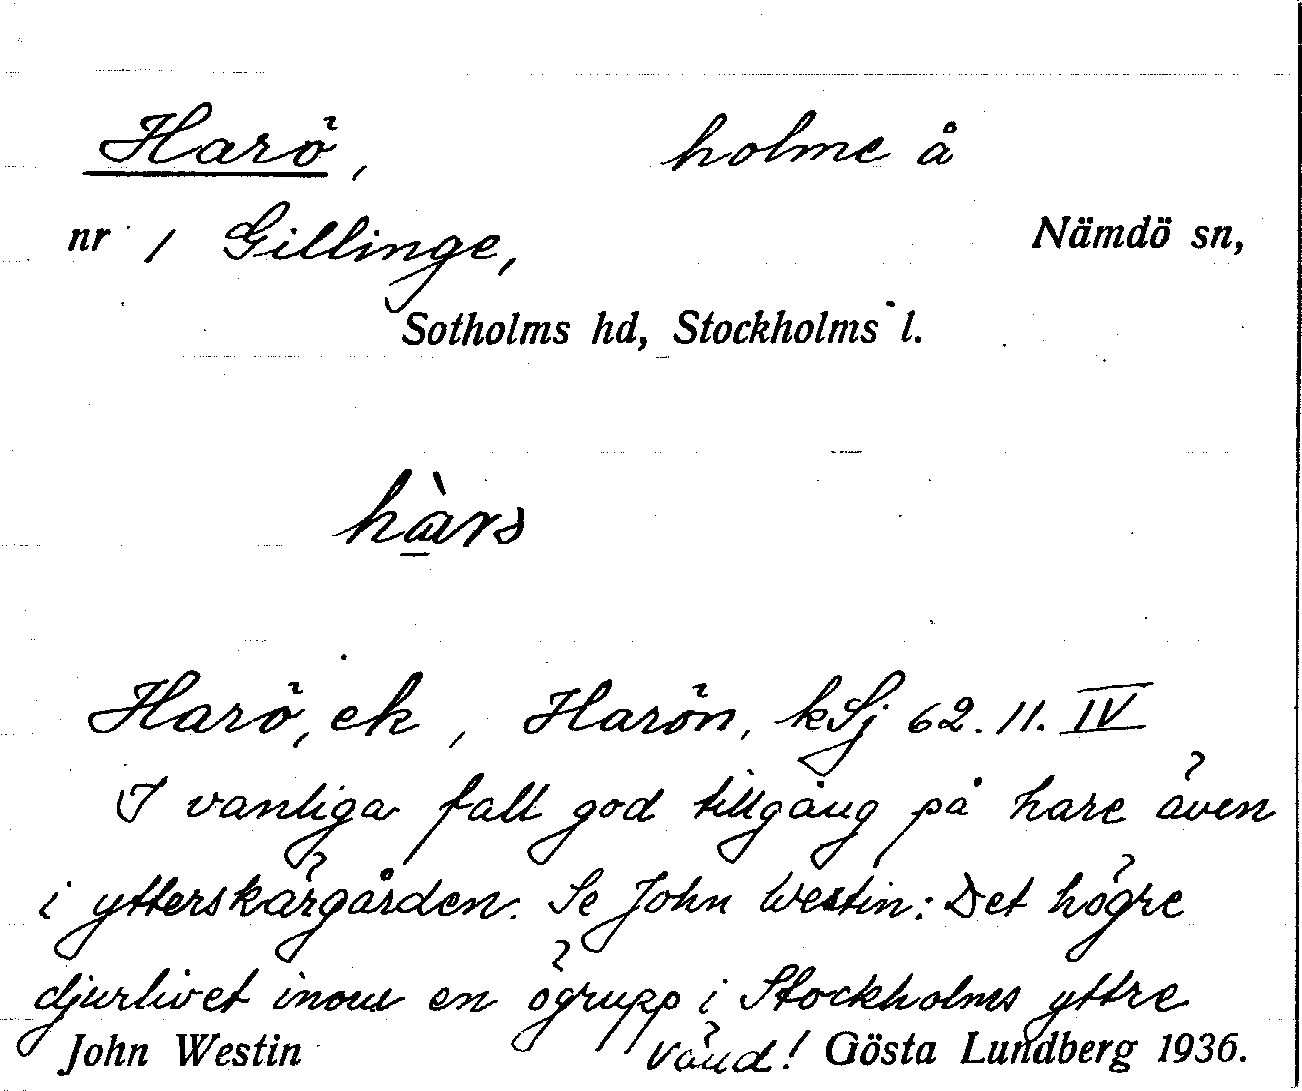 Harö, holme å
nr 1 Gillinge, Nämdö sn,
Sotholms hd, Stockholms l.
hàrs
Harö, ek, Harön, kSj 62. 11. IV
I vanliga fall god tillgång på hare även
i ytterskärgården. Se John Westin: Det högre
djurlivet inom en ögrupp i Stockholms yttre
John Westin vänd! Gösta Lundberg 1936.